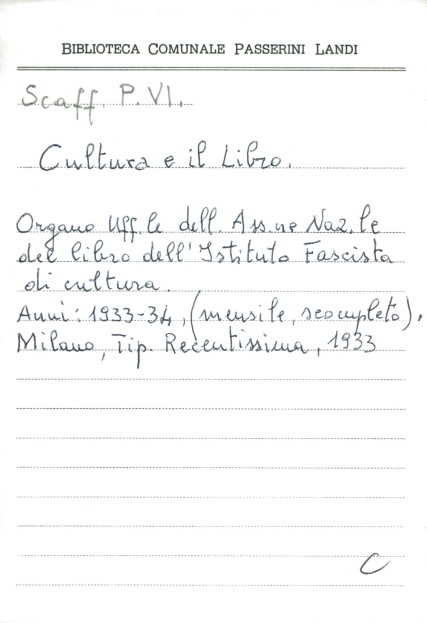 BIBLIOTECA COMUNALE PASSERINI LANDI
Scaff. P. VI.
Cultura e il Libro.
Organo Uff.le dell. Ass.ne Naz.le
del libro dell'Istituto Fascista
di cultura.
Anni: 1933-34, (mensile, scompleto).
Milano, Tip. Recentissima, 1933
C